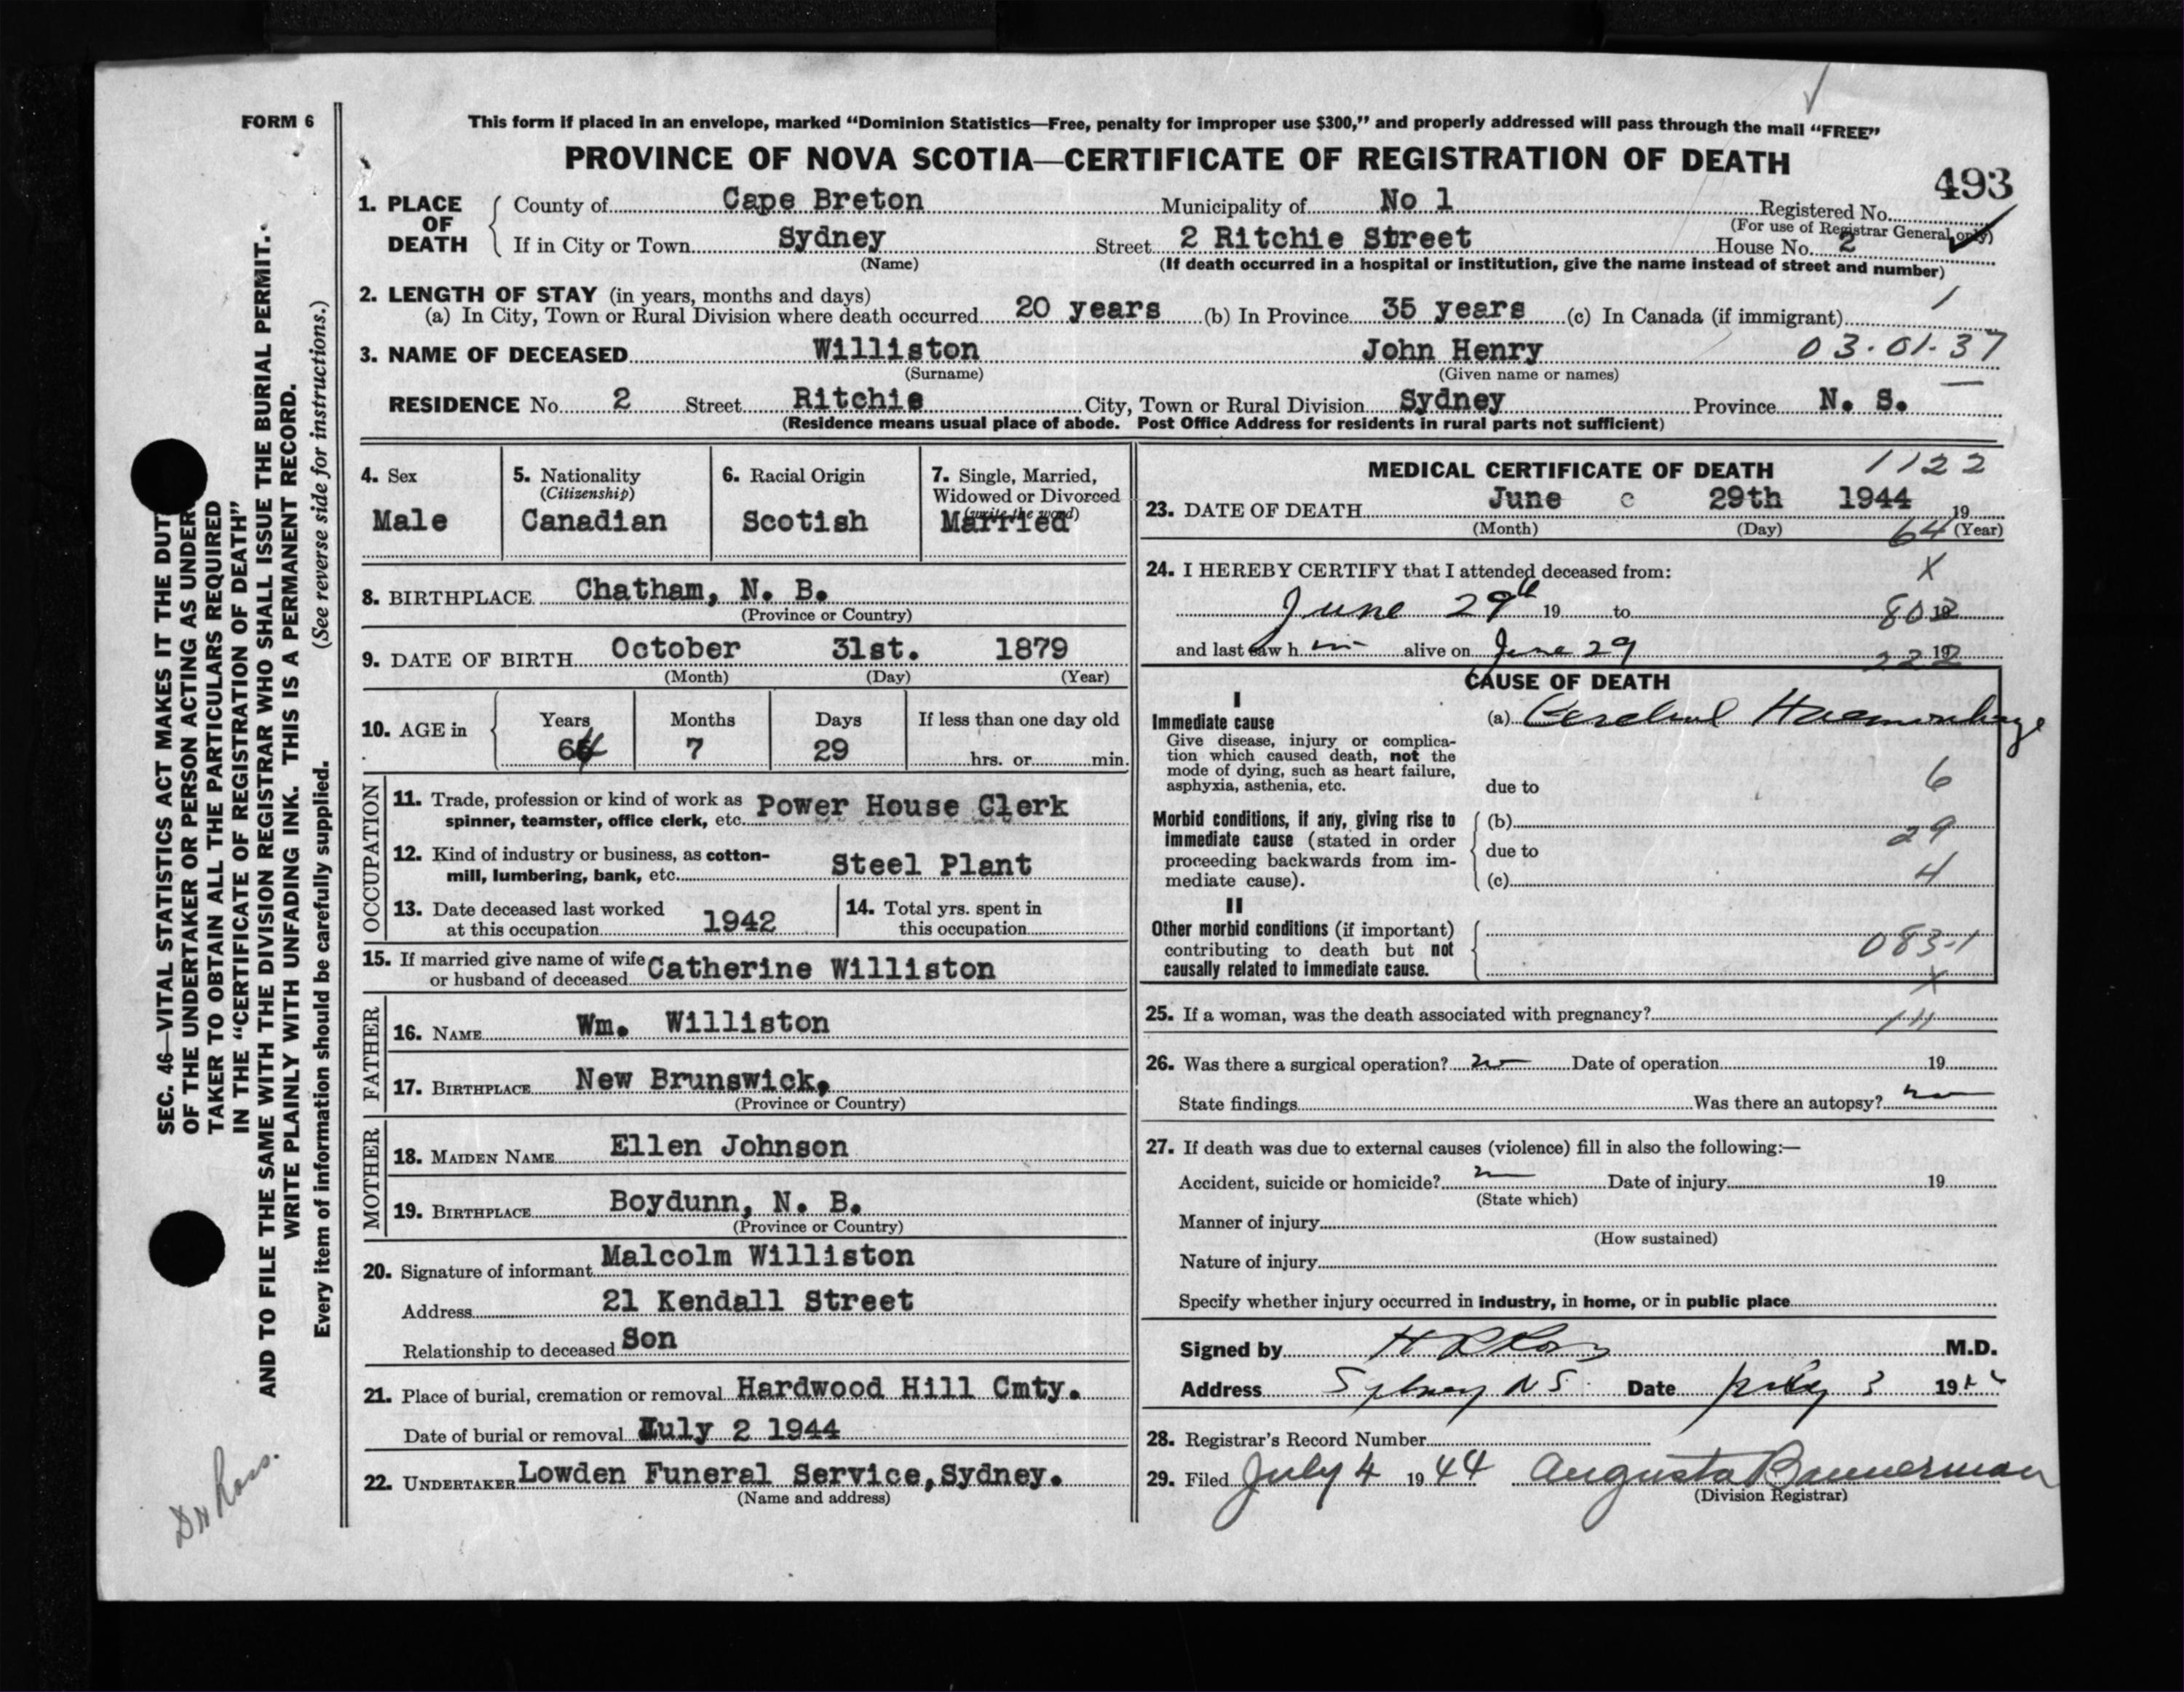 FORM 6
This form if placed in an envelope, marked “Dominion Statistics—Free, penalty for improper use $300,” and properly addressed will pass through the mail “FREE”
PROVINCE OF NOVA SCOTIA—CERTIFICATE OF REGISTRATION OF DEATH
493
1. PLACE OF DEATH
County of Cape Breton Municipality of No 1 Registered No.
(For use of Registrar General only)
If in City or Town Sydney Street 2 Ritchie Street House No. 2
(Name) (If death occurred in a hospital or institution, give the name instead of street and number)
2. LENGTH OF STAY (in years, months and days)
(a) In City, Town or Rural Division where death occurred 20 years (b) In Province 35 years (c) In Canada (if immigrant) 1
3. NAME OF DECEASED Williston John Henry 03-01-37
(Surname) (Given name or names)
RESIDENCE No. 2 Street Ritchie City, Town or Rural Division Sydney Province N. S.
(Residence means usual place of abode. Post Office Address for residents in rural parts not sufficient)
4. Sex
Male
5. Nationality
(Citizenship)
Canadian
6. Racial Origin
Scotish
7. Single, Married,
Widowed or Divorced
(write the word)
Married
8. BIRTHPLACE Chatham, N. B.
(Province or Country)
9. DATE OF BIRTH October 31st. 1879
(Month) (Day) (Year)
10. AGE in
Years Months Days If less than one day old
64 7 29 hrs. or min.
OCCUPATION
11. Trade, profession or kind of work as
spinner, teamster, office clerk, etc. Power House Clerk
12. Kind of industry or business, as cotton-
mill, lumbering, bank, etc. Steel Plant
13. Date deceased last worked
at this occupation 1942
14. Total yrs. spent in
this occupation
15. If married give name of wife
or husband of deceased Catherine Williston
FATHER
16. NAME Wm. Williston
17. BIRTHPLACE New Brunswick,
(Province or Country)
MOTHER
18. MAIDEN NAME Ellen Johnson
19. BIRTHPLACE Boydunn, N. B.
(Province or Country)
20. Signature of informant Malcolm Williston
Address 21 Kendall Street
Relationship to deceased Son
21. Place of burial, cremation or removal Hardwood Hill Cmty.
Date of burial or removal July 2 1944
22. UNDERTAKER Lowden Funeral Service, Sydney.
(Name and address)
MEDICAL CERTIFICATE OF DEATH 1122
23. DATE OF DEATH June c 29th 1944 19
(Month) (Day) (Year)
64
24. I HEREBY CERTIFY that I attended deceased from: X
June 29th 19 to 19
and last saw h im alive on June 29 19
CAUSE OF DEATH
I
Immediate cause
Give disease, injury or complica-
tion which caused death, not the
mode of dying, such as heart failure,
asphyxia, asthenia, etc.
(a) Cerebral Haemorrhage
due to 6
Morbid conditions, if any, giving rise to
immediate cause (stated in order
proceeding backwards from im-
mediate cause).
(b)
29
due to
(c) 4
II
Other morbid conditions (if important)
contributing to death but not
causally related to immediate cause.
083-1
X
25. If a woman, was the death associated with pregnancy?
26. Was there a surgical operation? no Date of operation 19
State findings Was there an autopsy? no
27. If death was due to external causes (violence) fill in also the following:—
Accident, suicide or homicide? Date of injury 19
(State which)
Manner of injury
(How sustained)
Nature of injury
Specify whether injury occurred in industry, in home, or in public place
Signed by Ross M.D.
Address Sydney NS Date July 3 1944
28. Registrar's Record Number
29. Filed July 4 1944 Augusta Bannerman
(Division Registrar)
SEC. 46—VITAL STATISTICS ACT MAKES IT THE DUT
OF THE UNDERTAKER OR PERSON ACTING AS UNDER
TAKER TO OBTAIN ALL THE PARTICULARS REQUIRED
IN THE “CERTIFICATE OF REGISTRATION OF DEATH”
AND TO FILE THE SAME WITH THE DIVISION REGISTRAR WHO SHALL ISSUE THE BURIAL PERMIT.
WRITE PLAINLY WITH UNFADING INK. THIS IS A PERMANENT RECORD.
Every item of information should be carefully supplied. (See reverse side for instructions.)
Dr Ross.